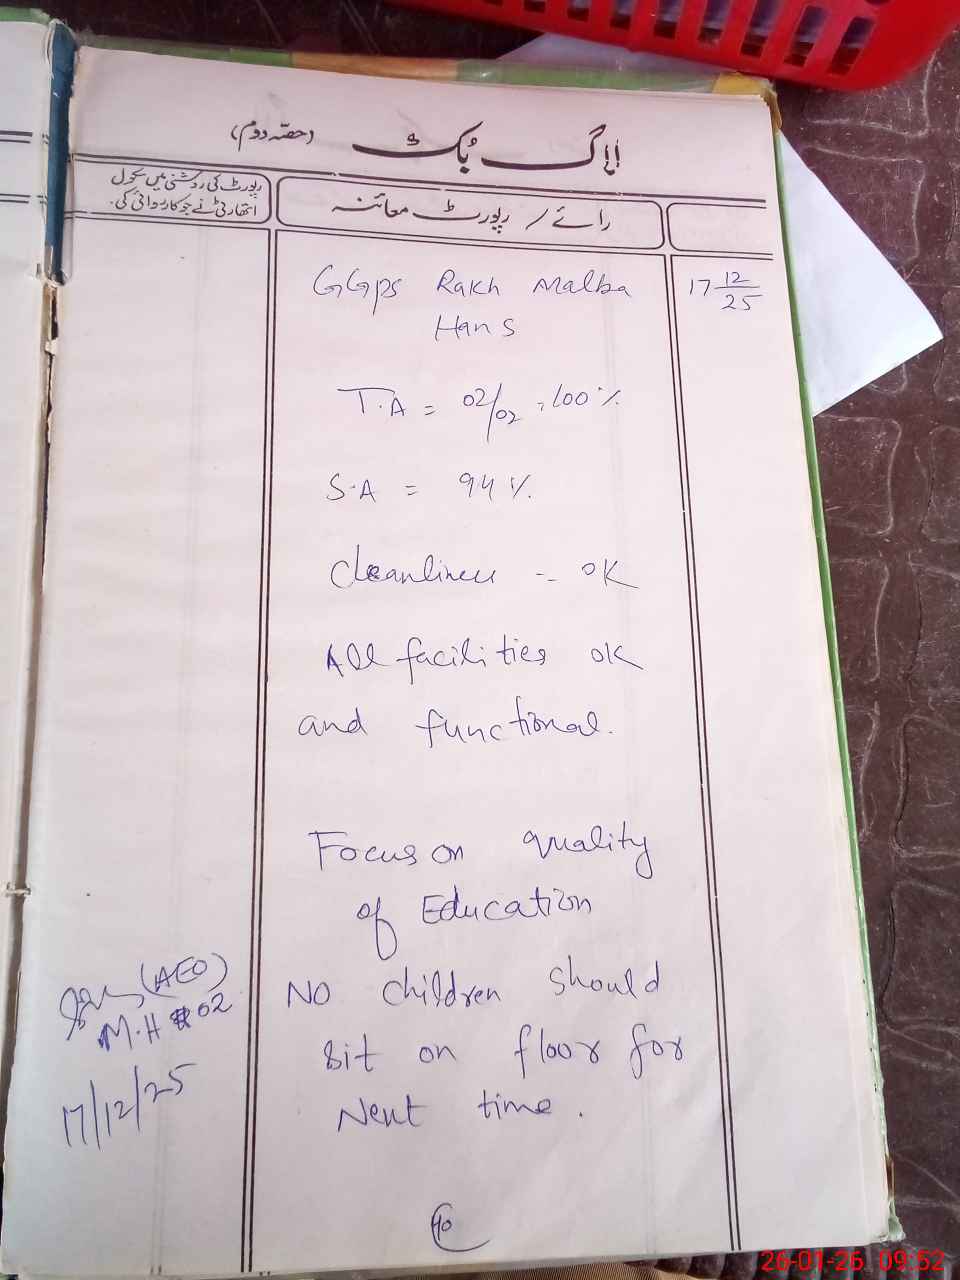 لاگ بُک (حصّہ دوم)
رائے / رپورٹ معائنہ
رپورٹ کی روشنی میں سکول
اتھارٹی نے جو کاروائی کی۔
17 12/25
GGps Rakh Malba
Hans
T.A = 02/02 = 100%
S.A = 94%
Cleanliness -- OK
All facilities ok
and functional.
Focus on quality
of Education
No children should
sit on floor for
Next time.
(AEO)
M.H # 02
17/12/25
10
26-01-26 09:52